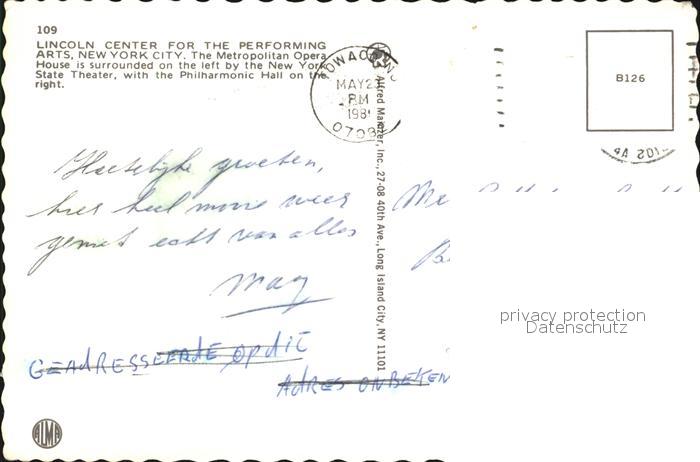 109
LINCOLN CENTER FOR THE PERFORMING
ARTS, NEW YORK CITY. The Metropolitan Opera
House is surrounded on the left by the New York
State Theater, with the Philharmonic Hall on the
right.
TOWACO, N
MAY 23
PM
198
0708
B126
Alfred Mainzer, Inc., 27-08 40th Ave., Long Island City, NY 11101
Hartelijke groeten,
hier heel mooie weer
geniet echt van alles
May
Me
Be
privacy protection
Datenschutz
GEADRESSEERDE OP DIT
ADRES ONBEKEN
ALMA